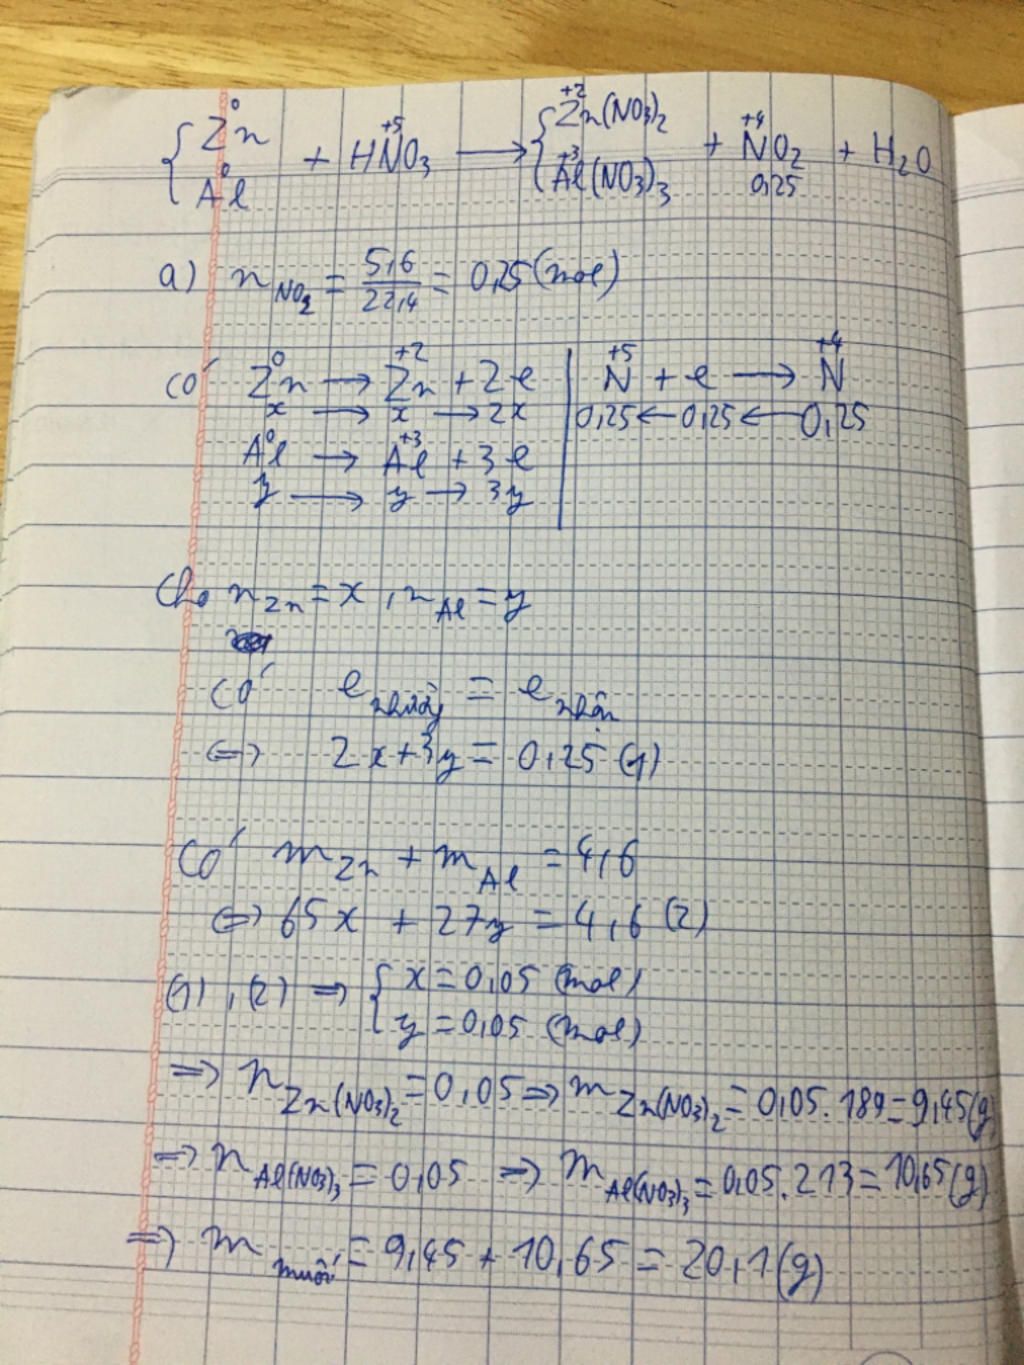 { Zn⁰ Al⁰ + HN⁺⁵O3 → { Zn⁺²(NO3)2 Al⁺³(NO3)3 + N⁺⁴O2 + H2O
0,25
a) nNO2 = 5,6/22,4 = 0,25 (mol)
Có Zn⁰ → Zn⁺² + 2e | N⁺⁵ + e → N⁺⁴
x → x → 2x | 0,25 ← 0,25 ← 0,25
Al⁰ → Al⁺³ + 3e
y → y → 3y
Cho nZn = x, nAl = y
Có e nhường = e nhận
⇔ 2x + 3y = 0,25 (1)
Có mZn + mAl = 4,6
⇔ 65x + 27y = 4,6 (2)
(1), (2) ⇒ { x = 0,05 (mol)
y = 0,05 (mol)
⇒ nZn(NO3)2 = 0,05 ⇒ mZn(NO3)2 = 0,05.189 = 9,45(g)
⇒ nAl(NO3)3 = 0,05 ⇒ mAl(NO3)3 = 0,05.213 = 10,65(g)
⇒ m muối = 9,45 + 10,65 = 20,1(g)